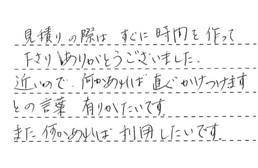 見積りの際は すぐに時間を作って
下さりありがとうございました.
近いので、何かあれば直ぐかけつけます
との言葉 有りがたいです
また何かあれば利用したいです.